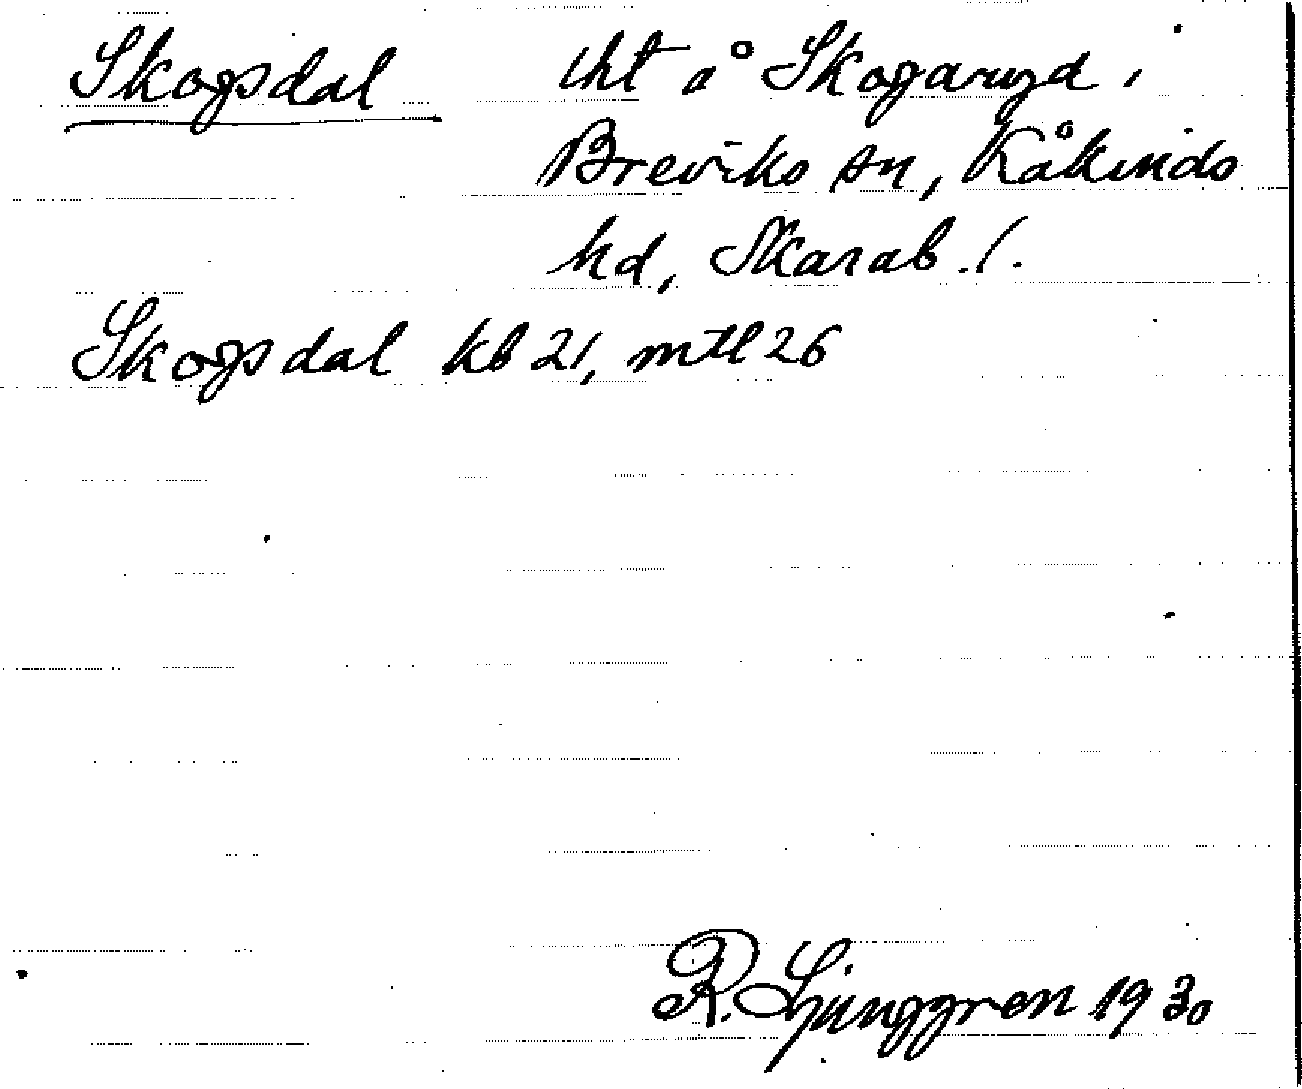 Skogsdal lht å Skogaryd i
Breviks sn, Kåkinds
hd, Skarab. l.
Skogsdal kb 21, mtl 26
R. Ljunggren 1930